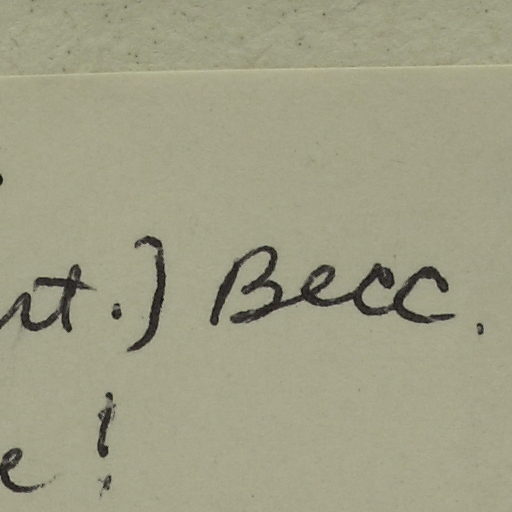 nt.) Becc.
e!